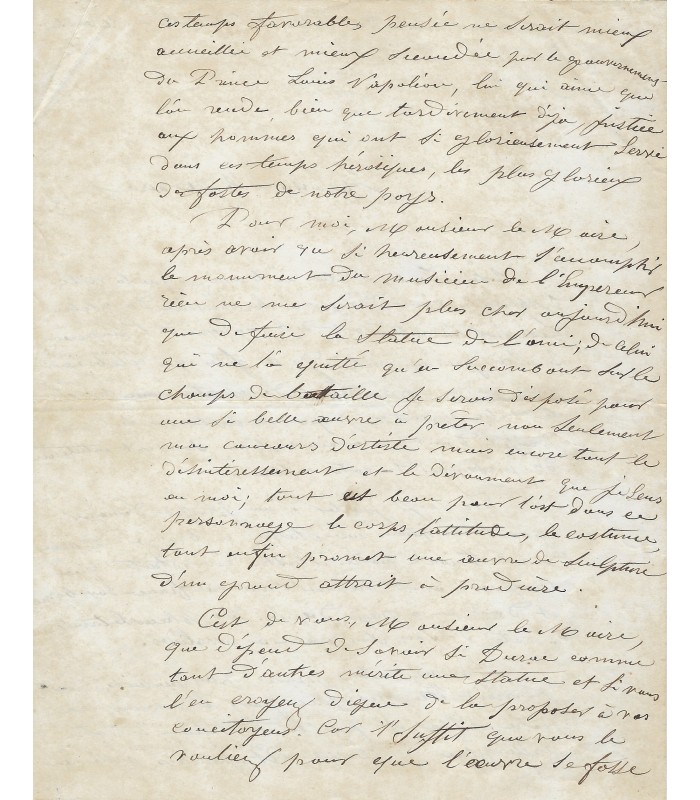 ces temps favorables, pensée ne serait mieux
accueillie et mieux secondée par le gouvernement
du Prince Louis Napoléon, lui qui aime que
l'on rende bien que tardivement déja, justice
aux hommes qui ont si glorieusement servi
dans ces temps héroïques, les plus glorieux
des fastes de notre pays.
Pour moi, Monsieur le Maire,
après avoir vu si heureusement s'accomplir
le monument du musicien de l'Empereur
rien ne me serait plus cher aujourd'hui
que de faire la statue de l'ami; de celui
qui ne l'a quitté qu'en succombant sur le
champs de bataille je serais disposé pour
une si belle œuvre à prêter non seulement
mon concours d'artiste mais encore tout le
désintéressement et le dévoument que je sens
en moi; tout est beau pour l'art dans ce
personnage le corps, l'attitude, le costume,
tout enfin promet une œuvre de sculpture
d'un grand attrait à produire.
C'est de vous, Monsieur le Maire,
que dépend de savoir si Duroc comme
tant d'autres mérite une statue et si vous
l'en croyez digne de la proposer à vos
concitoyens. Car il suffit que vous le
vouliez pour que l'œuvre se fasse